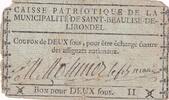 CAISSE PATRIOTIQUE DE LA
MUNICIPALITÉ DE SAINT-BEAULISE-DE-
LIRONDEL.
COUPON DE DEUX sous, pour être échangé contre
des assignats nationaux.
Bon pour deux sous. II